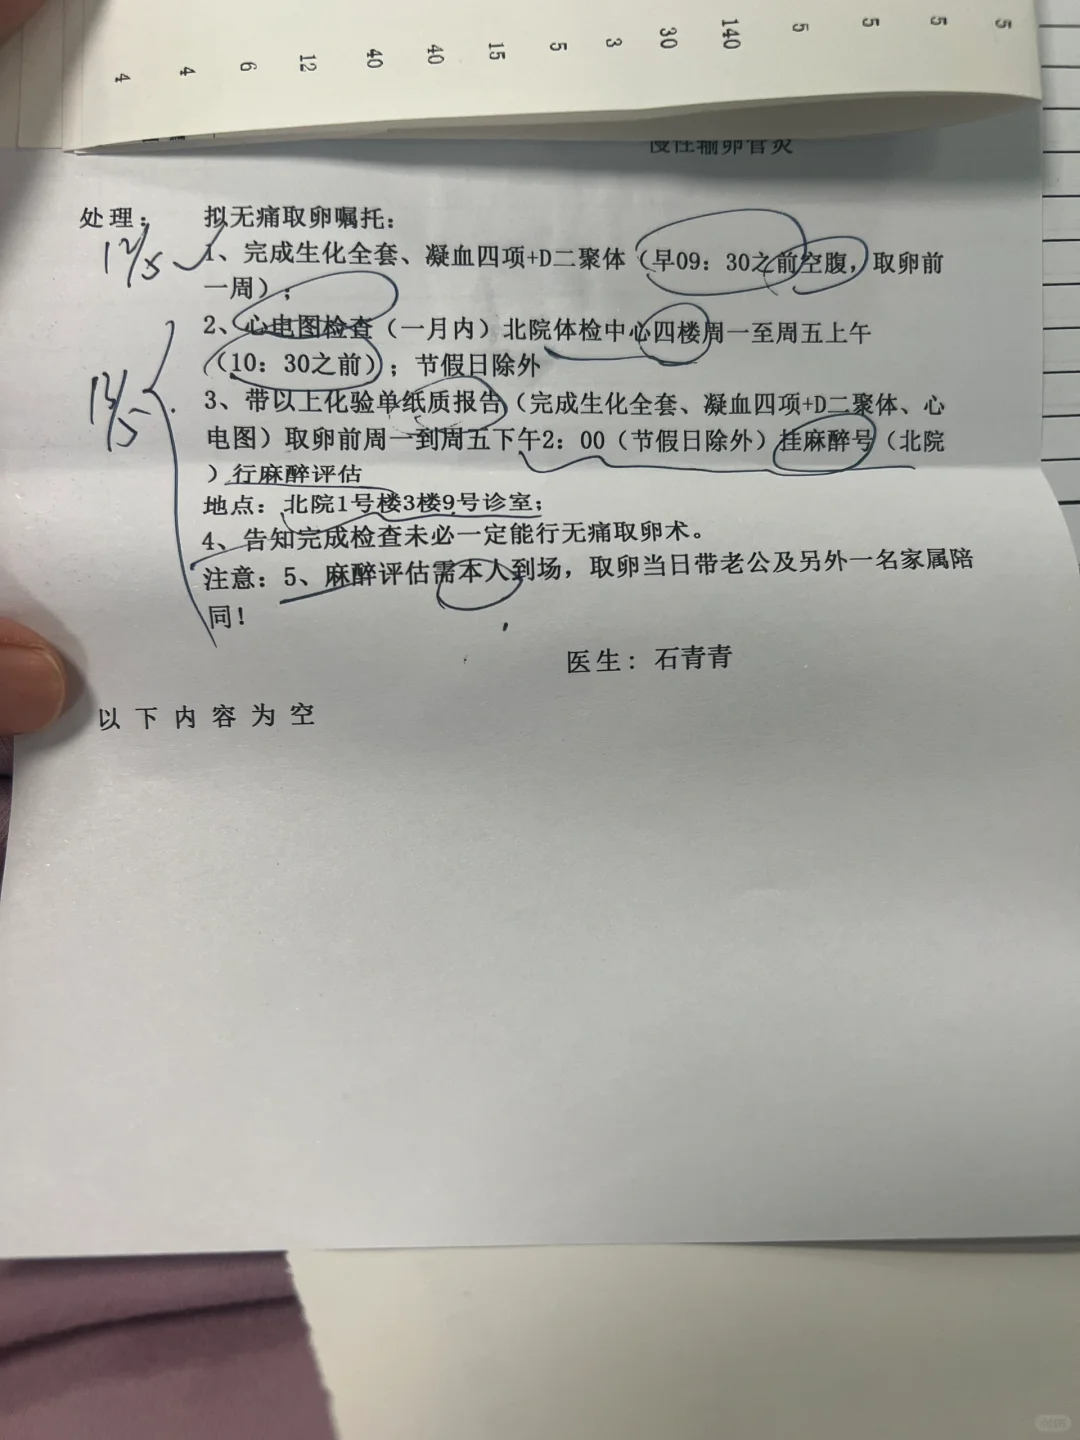 4 4 6 12 40 40 15 5 3 30 140 5 5 5 5
慢性输卵管炎
处理： 拟无痛取卵嘱托：
12/5
1、完成生化全套、凝血四项+D二聚体（早09：30之前空腹，取卵前
一周）；
2、心电图检查（一月内）北院体检中心四楼周一至周五上午
（10：30之前）；节假日除外
13/5
3、带以上化验单纸质报告（完成生化全套、凝血四项+D二聚体、心
电图）取卵前周一到周五下午2：00（节假日除外）挂麻醉号（北院
）行麻醉评估
地点：北院1号楼3楼9号诊室；
4、告知完成检查未必一定能行无痛取卵术。
注意：5、麻醉评估需本人到场，取卵当日带老公及另外一名家属陪
同！
医生： 石青青
以下内容为空